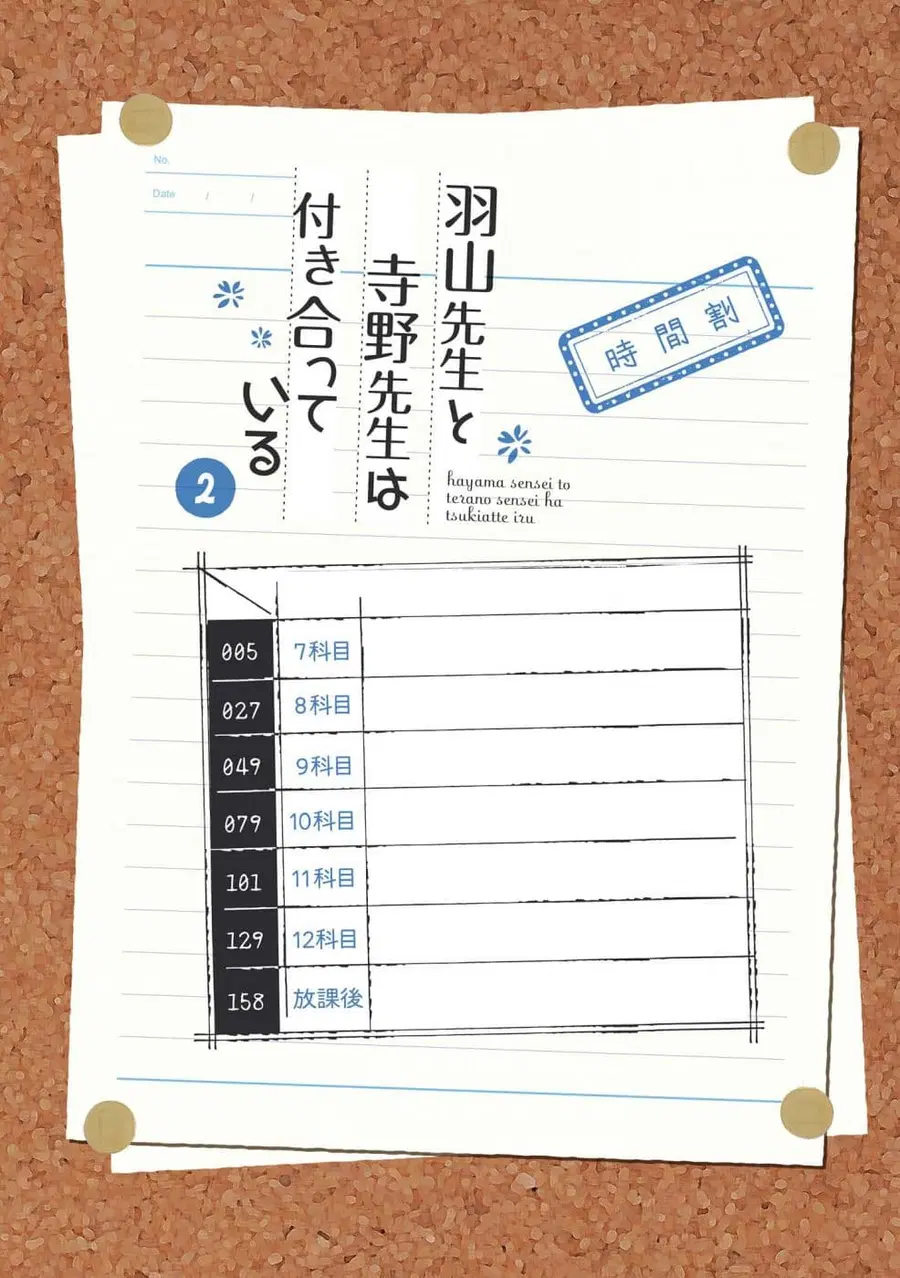 No.
Date / /
羽山先生と
寺野先生は
付き合って
いる
2
hayama sensei to
terano sensei ha
tsukiatte iru
時間割
005 7科目
027 8科目
049 9科目
079 10科目
101 11科目
129 12科目
158 放課後